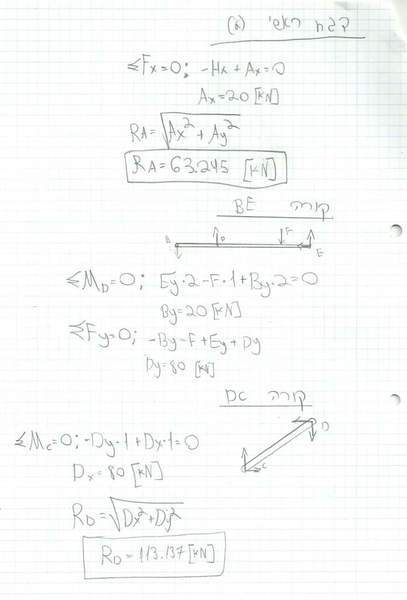 דבח ראשי (ב
ΣFx=0; -Hx + Ax=0
Ax=20 [kN]
RA=√(Ax²+Ay²)
RA=63.245 [kN]
קורה BE
B D F E
ΣMD=0; Ey·2-F·1+By·2=0
By=20 [kN]
ΣFy=0; -By-F+Ey+Dy
Dy=80 [kN]
קורה DC
D
C
ΣMc=0; -Dy·1+Dx·1=0
Dx=80 [kN]
RD=√(Dx²+Dy²)
RD=113.137 [kN]